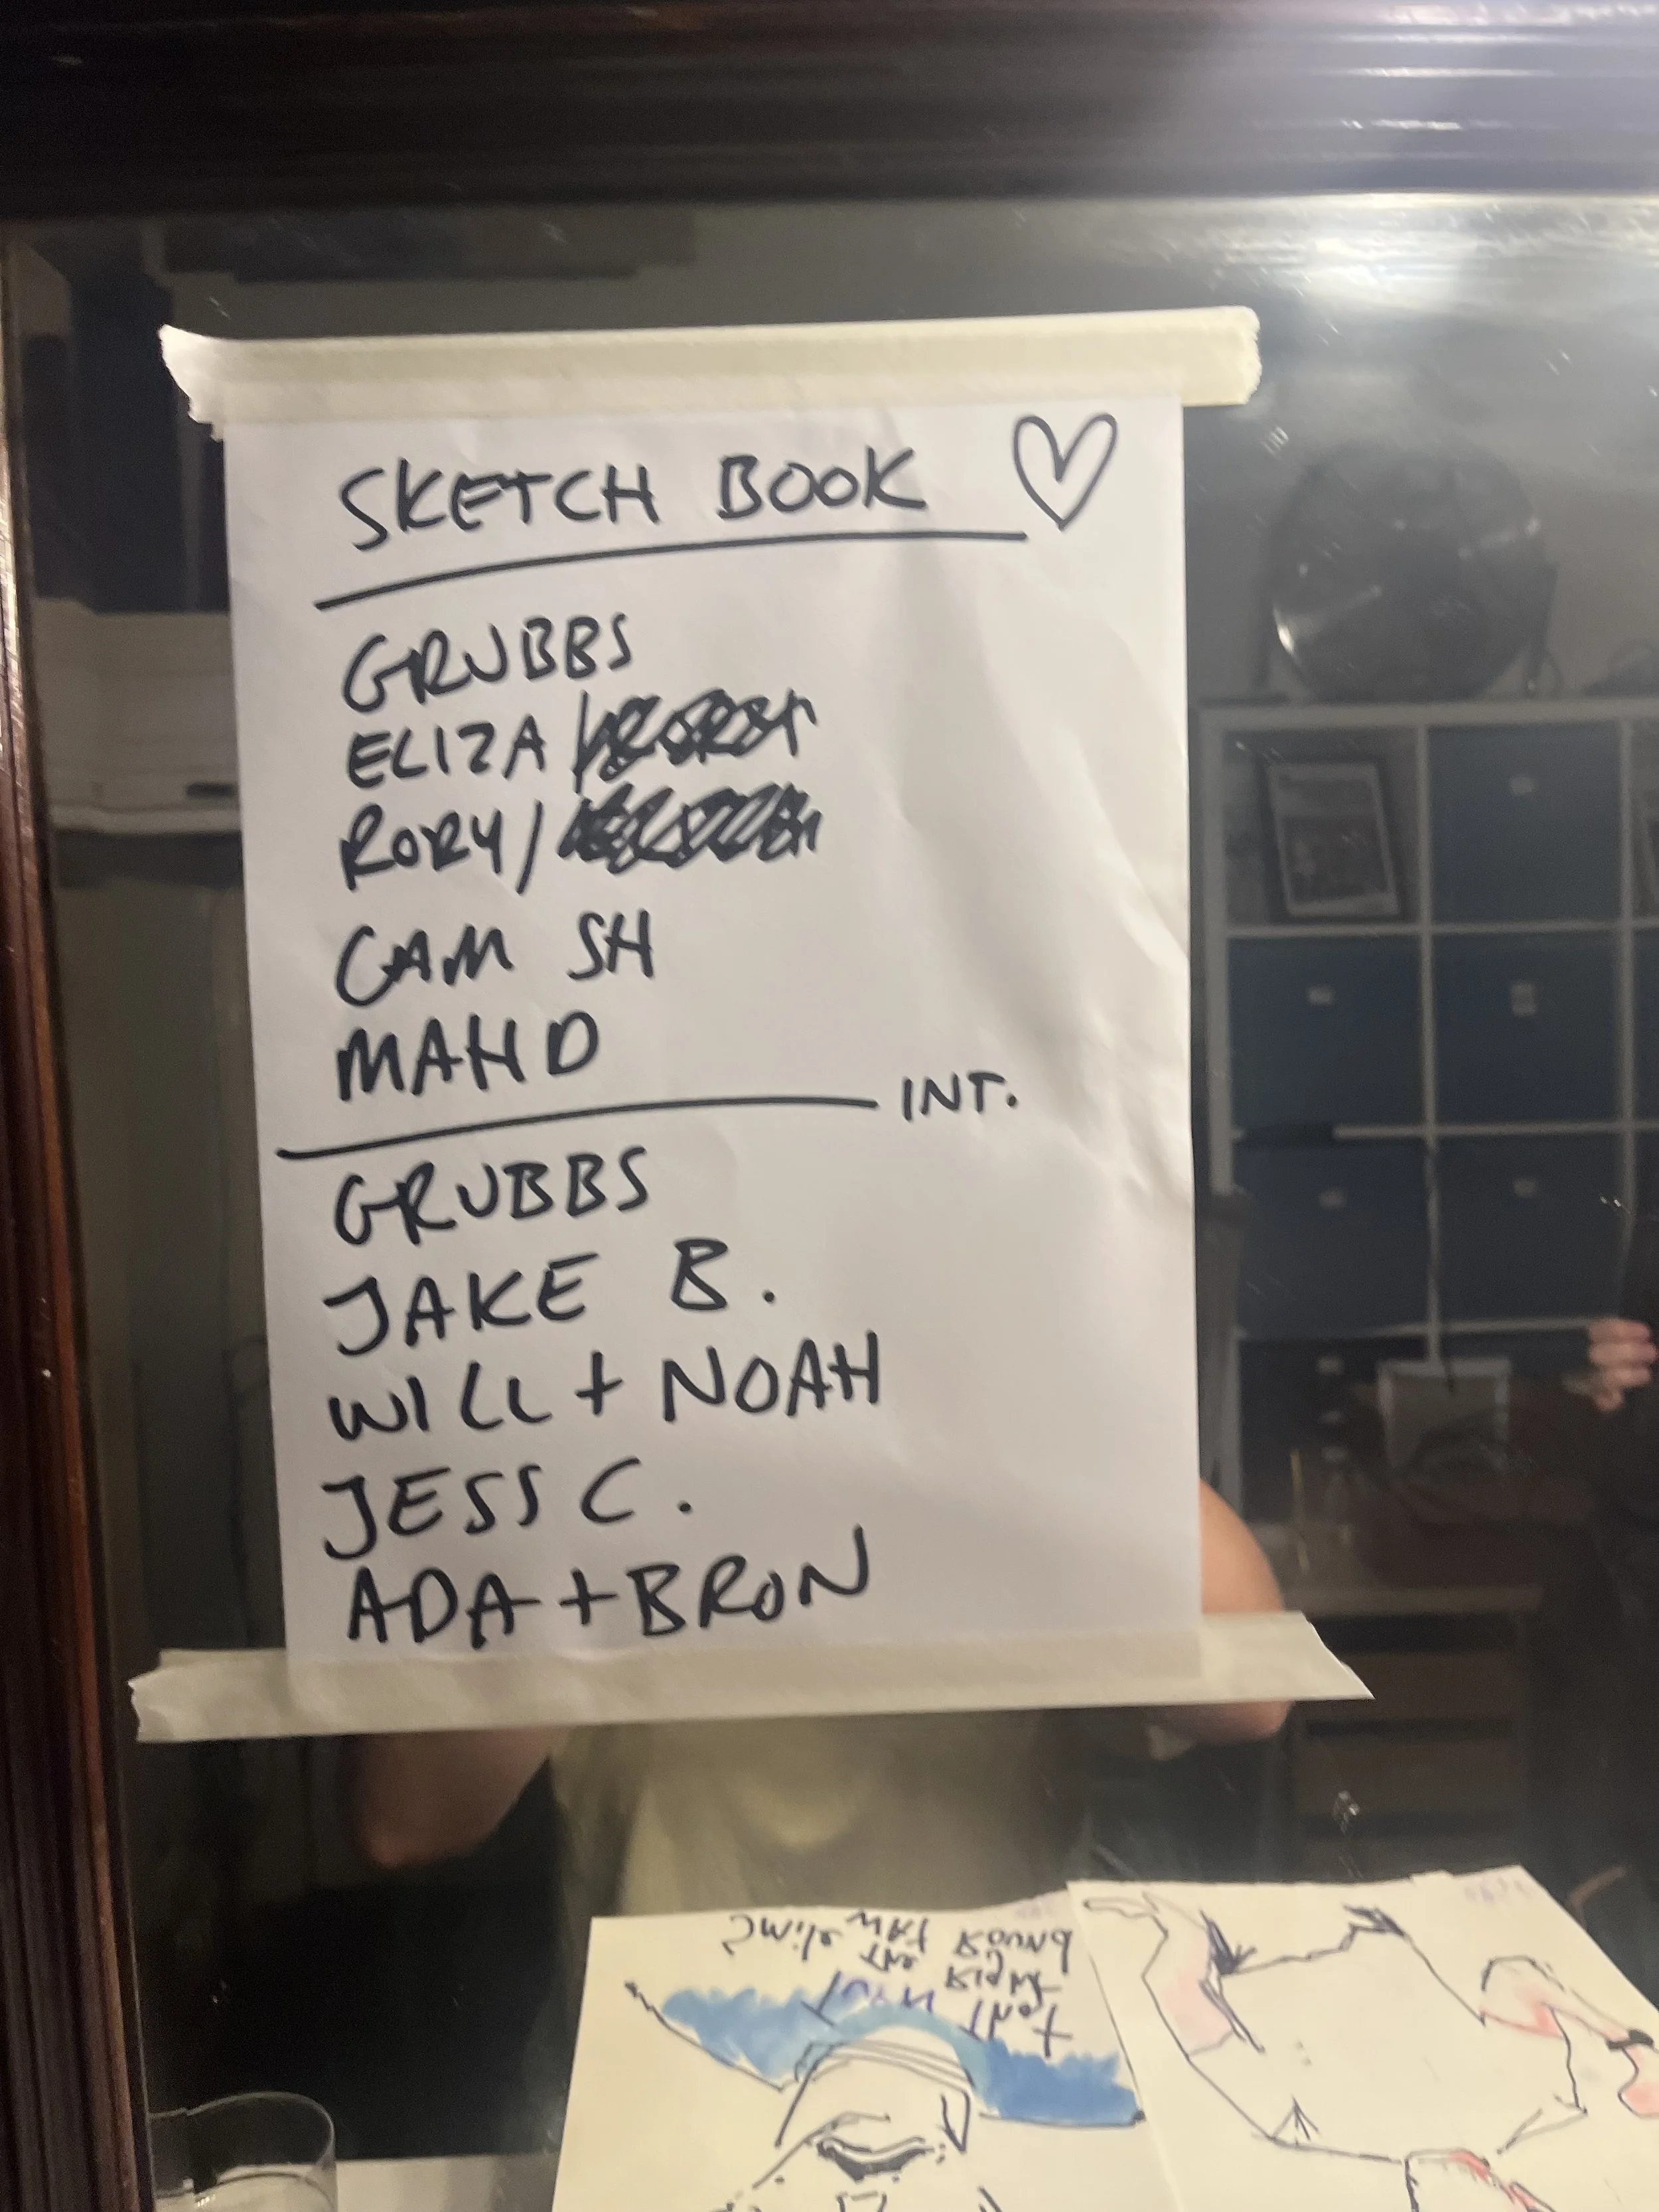 SKETCH BOOK
GRUBBS
ELIZA /
RORY /
CAM SH
MAHD
INT.
GRUBBS
JAKE B.
WILL + NOAH
JESS C.
ADA + BRON